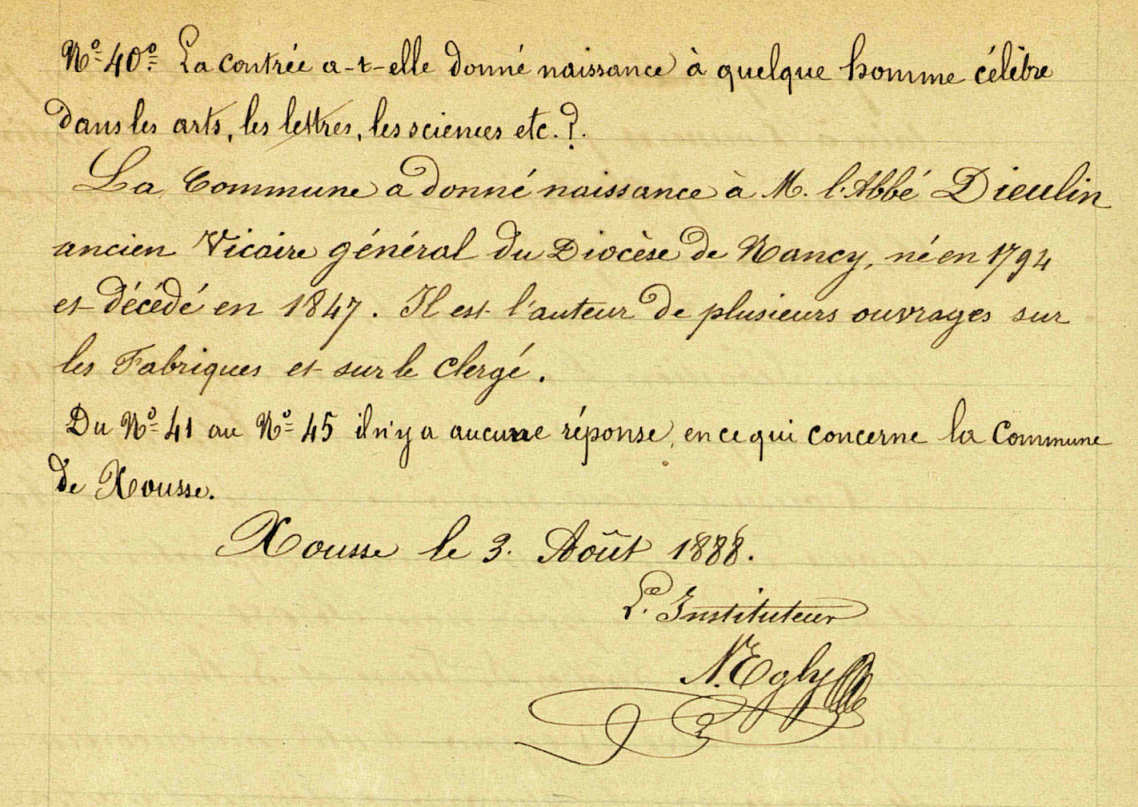 Nº 40º. La contrée a-t-elle donné naissance à quelque homme célèbre
dans les arts, les lettres, les sciences etc. ?.
La Commune a donné naissance à M. l'Abbé Dieulin
ancien Vicaire général du Diocèse de Nancy, né en 1794
et décédé en 1847. Il est l'auteur de plusieurs ouvrages sur
les Fabriques et sur le Clergé.
Du Nº 41 au Nº 45 il n'y a aucune réponse, en ce qui concerne la Commune
de Xousse.
Xousse le 3. Août 1888.
L'Instituteur
N. Egly